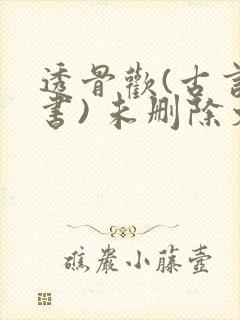 透骨歡(古言
書)未删除
礁巖小藤壺